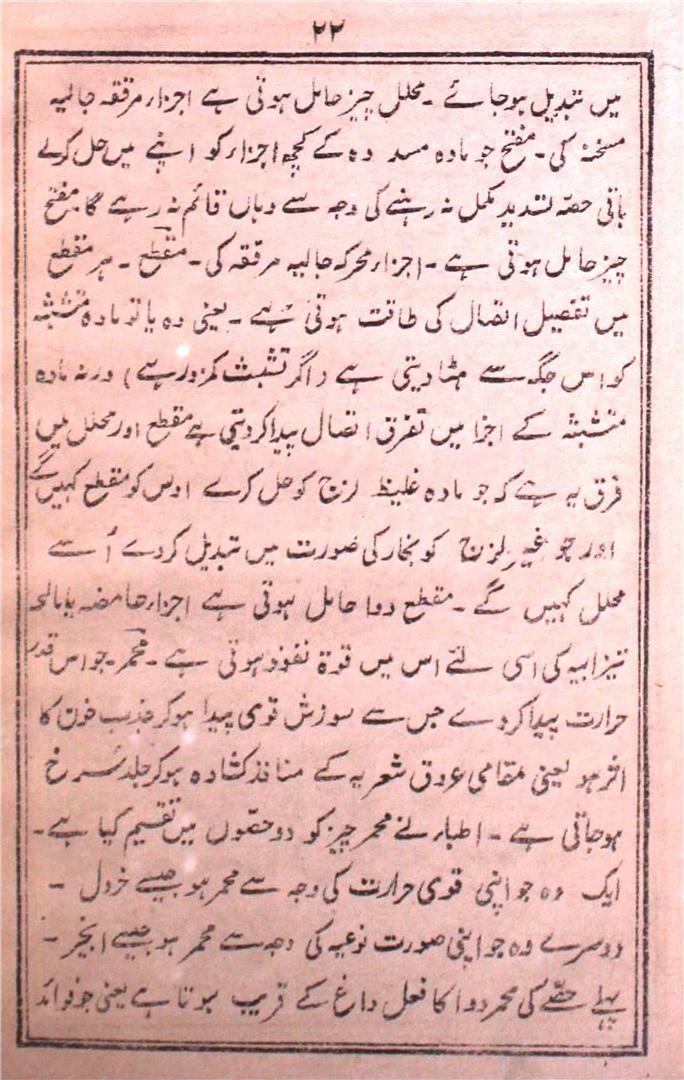 ۲۲
میں تبدیل ہوجائے ۔ محلل چیز حامل ہوتی ہے اجزاء مرققہ جالیہ
مسخنہ کی ۔ مفتح جو مادہ مسددہ کے کچھ اجزاء کو اپنے میں حل کرلے
باقی حصہ تسدید مکمل نہ رہنے کی وجہ سے وہاں قائم نہ رہے گا مفتح
چیز حامل ہوتی ہے ۔ اجزاء محرکہ جالیہ مرققہ کی ۔ مقطع ۔ ہر مقطع
میں تفصیل اتصال کی طاقت ہوتی ہے ۔ یعنی وہ یا تو مادہ متشبثہ
کو اس جگہ سے ہٹا دیتی ہے (اگر تشبث کمزور ہے) ورنہ مادہ
متشبثہ کے اجزا میں تفرق اتصال پیدا کردیتی ہے مقطع اور محلل میں
فرق یہ ہے کہ جو مادہ غلیظ لزج کو حل کرے اوس کو مقطع کہیں گے
اور جو غیر لزج کو بخار کی صورت میں تبدیل کردے اُسے
محلل کہیں گے ۔ مقطع دوا حامل ہوتی ہے اجزاء حامضہ یا مالحہ
تیزابیہ کی اسی لئے اس میں قوۃ نفوذ ہوتی ہے ۔ محمر ۔ جو اس قدر
حرارت پیدا کردے جس سے سوزش قوی پیدا ہوکر جذب خون کا
اثر ہو یعنی مقامی عروق شعریہ کے منافذ کشادہ ہوکر جلد سرخ
ہوجاتی ہے ۔ اطباء نے محمر چیز کو دو حصّوں میں تقسیم کیا ہے ۔
ایک وہ جو اپنی قوی حرارت کی وجہ سے محمر ہو جیسے خردل ۔
دوسرے وہ جو اپنی صورت نوعیہ کی وجہ سے محمر ہو جیسے انجیر ۔
پہلے حصّے کی محمر دوا کا فعل داغ کے قریب ہوتا ہے یعنی جو فوائد